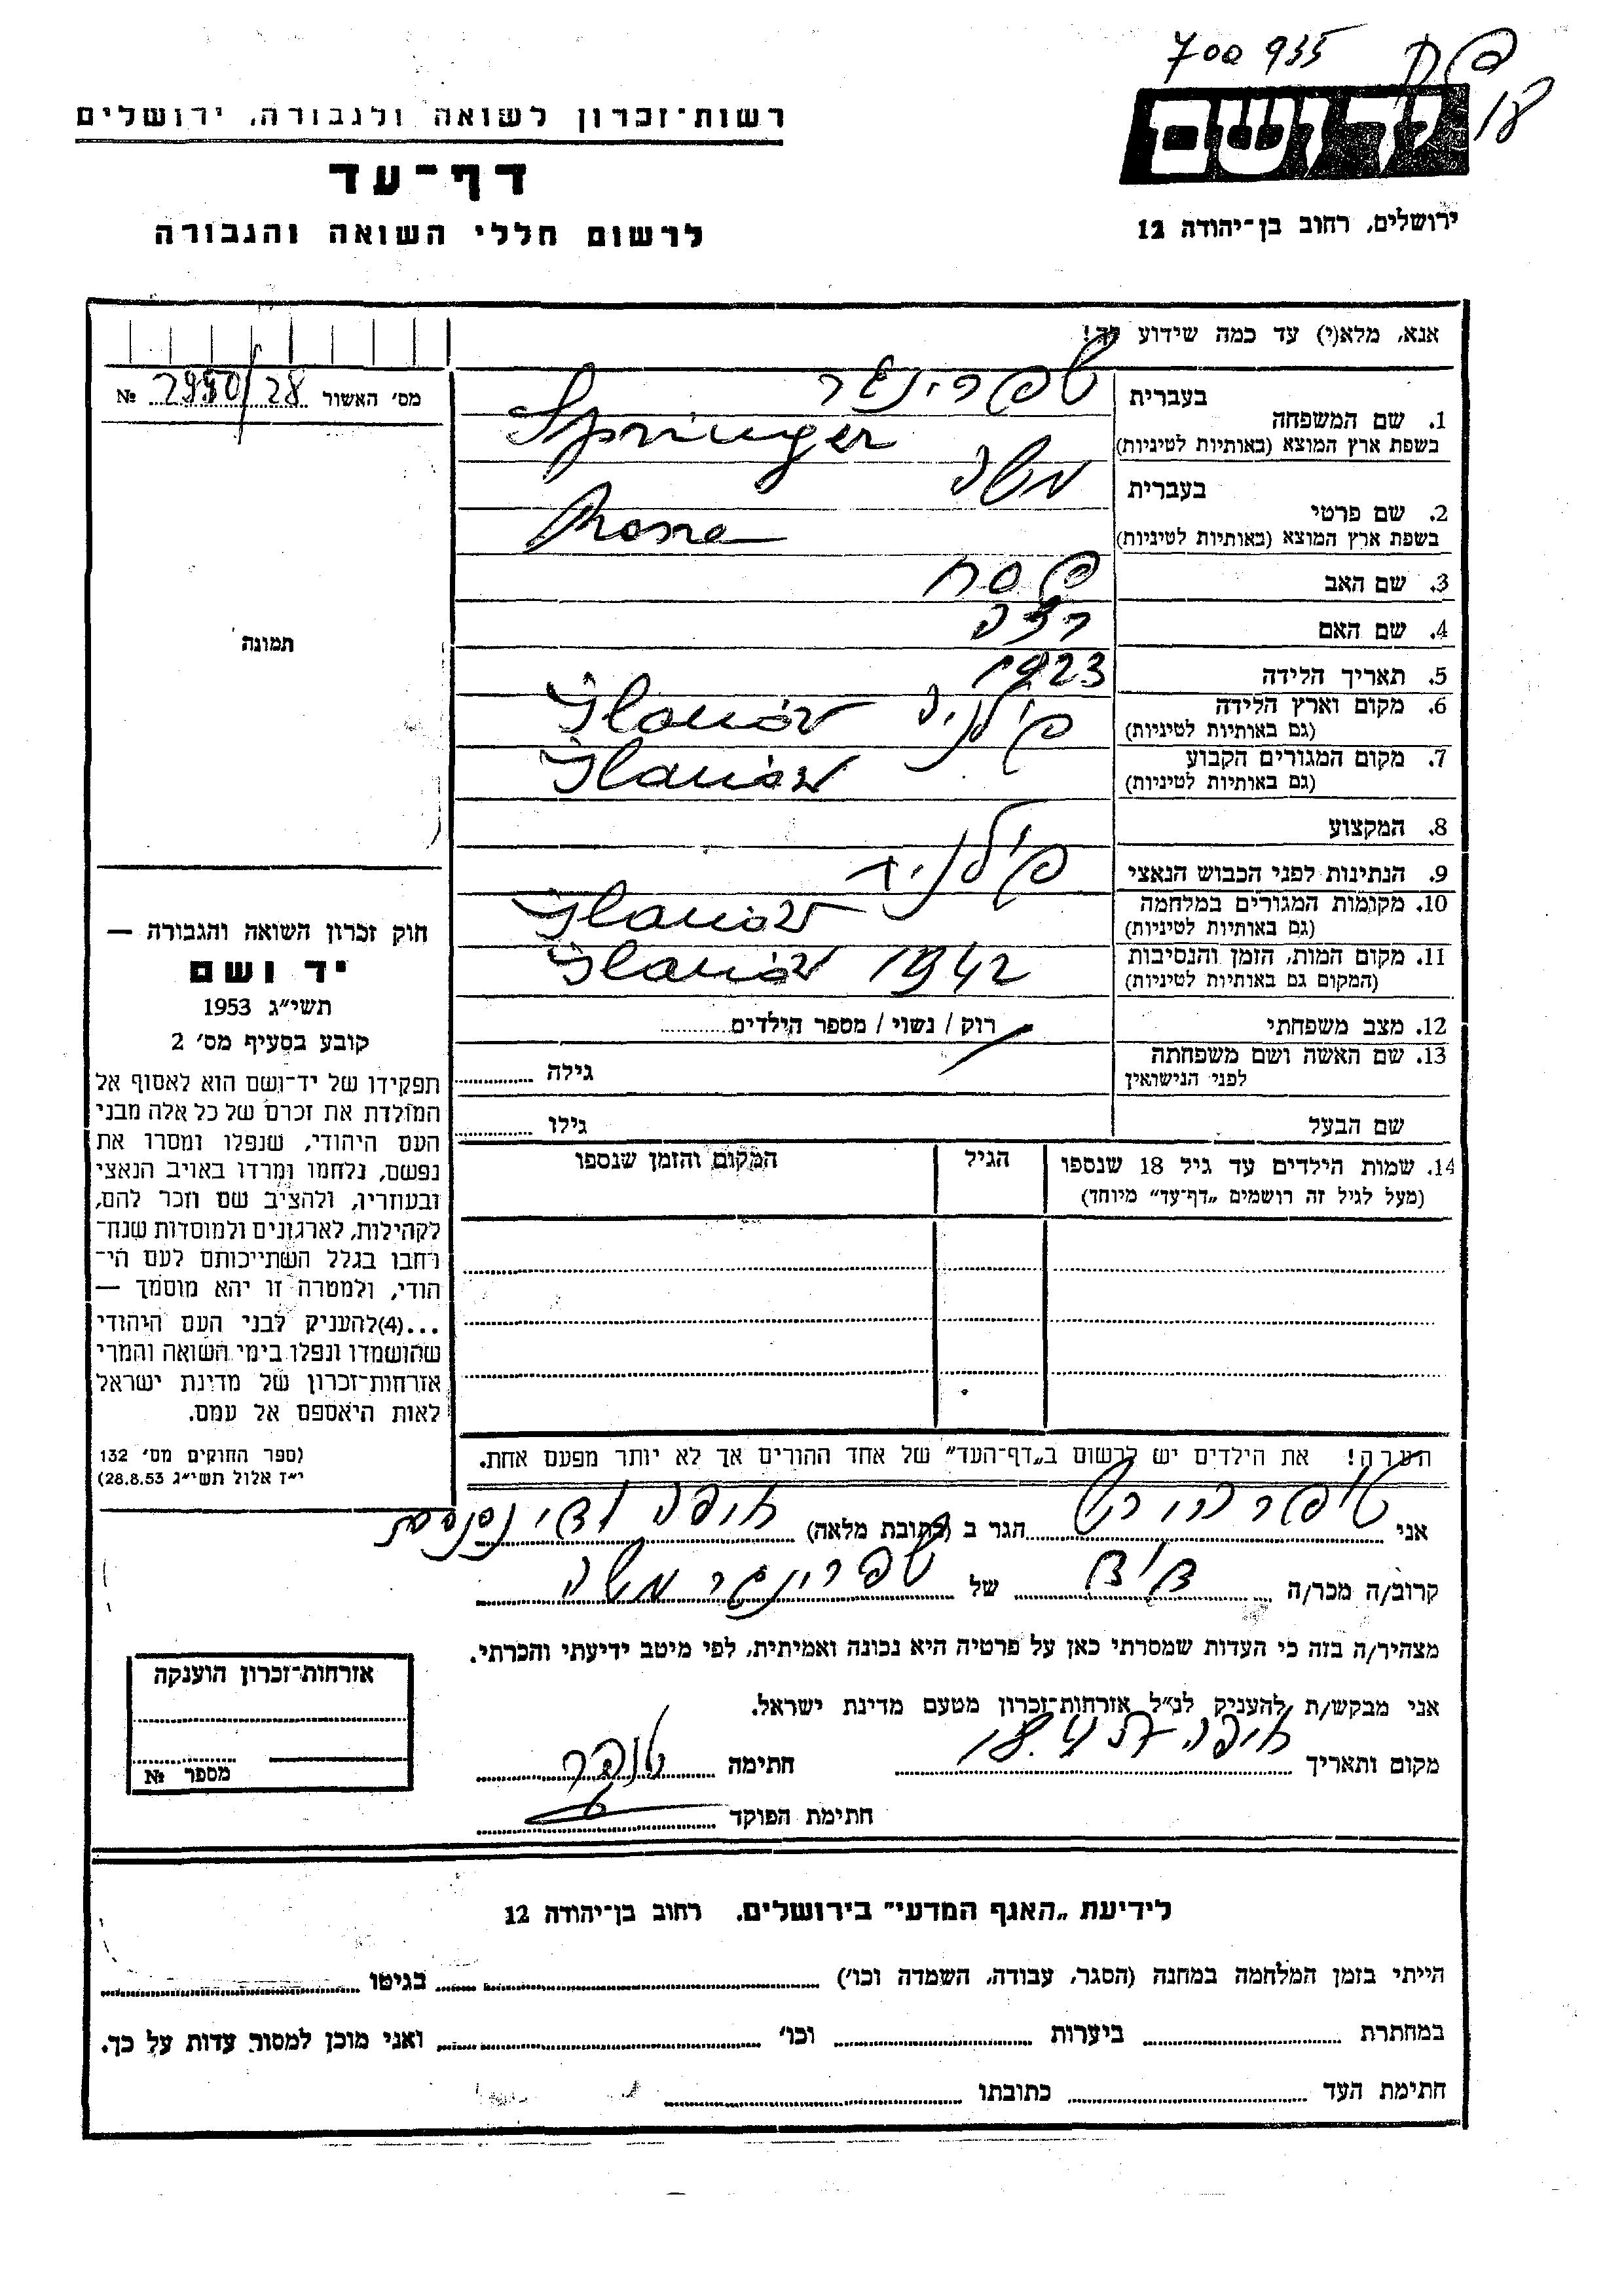 700935
יד ושם
ירושלים, רחוב בן־יהודה 12
רשות־זכרון לשואה ולגבורה, ירושלים
דף־עד
לרשום חללי השואה והגבורה
אנא, מלא(י) עד כמה שידוע לך!
מס׳ האשור 2990/28 №
תמונה
בעברית שפרינגר
1. שם המשפחה
בשפת ארץ המוצא (באותיות לטיניות) Springer
בעברית משה
2. שם פרטי
בשפת ארץ המוצא (באותיות לטיניות)
3. שם האב פסח
4. שם האם
5. תאריך הלידה 1923
6. מקום וארץ הלידה פולניה
(גם באותיות לטיניות)
7. מקום המגורים הקבוע
(גם באותיות לטיניות)
8. המקצוע
9. הנתינות לפני הכבוש הנאצי
10. מקומות המגורים במלחמה
(גם באותיות לטיניות)
11. מקום המות, הזמן והנסיבות 1942
(המקום גם באותיות לטיניות)
12. מצב משפחתי רוק / נשוי / מספר הילדים
13. שם האשה ושם משפחתה גילה
לפני הנישואין
שם הבעל גילו
14. שמות הילדים עד גיל 18 שנספו הגיל המקום והזמן שנספו
(מעל לגיל זה רושמים „דף־עד״ מיוחד)
הערה! את הילדים יש לרשום ב„דף־העד״ של אחד ההורים אך לא יותר מפעם אחת.
חוק זכרון השואה והגבורה —
יד ושם
תשי״ג 1953
קובע בסעיף מס׳ 2
תפקידו של יד־ושם הוא לאסוף אל
המולדת את זכרם של כל אלה מבני
העם היהודי, שנפלו ומסרו את
נפשם, נלחמו ומרדו באויב הנאצי
ובעוזריו, ולהציב שם וזכר להם,
לקהילות, לארגונים ולמוסדות שנח־
רחבו בגלל השתייכותם לעם הי־
הודי, ולמטרה זו יהא מוסמך —
...(4)להעניק לבני העם היהודי
שהושמדו ונפלו בימי השואה והמרי
אזרחות־זכרון של מדינת ישראל
לאות היאספם אל עמם.
(ספר החוקים מס׳ 132
י״ז אלול תשי״ג 28.8.53)
אני הגר ב (כתובת מלאה) חיפה
קרוב/ה מכר/ה של שפרינגר משה
מצהיר/ה בזה כי העדות שמסרתי כאן על פרטיה היא נכונה ואמיתית, לפי מיטב ידיעתי והכרתי.
אני מבקש/ת להעניק לנ״ל אזרחות־זכרון מטעם מדינת ישראל.
מקום ותאריך חיפה 18.4.57 חתימה
חתימת הפוקד
אזרחות־זכרון הוענקה
מספר №
לידיעת „האגף המדעי״ בירושלים, רחוב בן־יהודה 12
הייתי בזמן המלחמה במחנה (הסגר, עבודה, השמדה וכו׳) בגיטו
במחתרת ביערות וכו׳ ואני מוכן למסור עדות על כך.
חתימת העד כתובתו